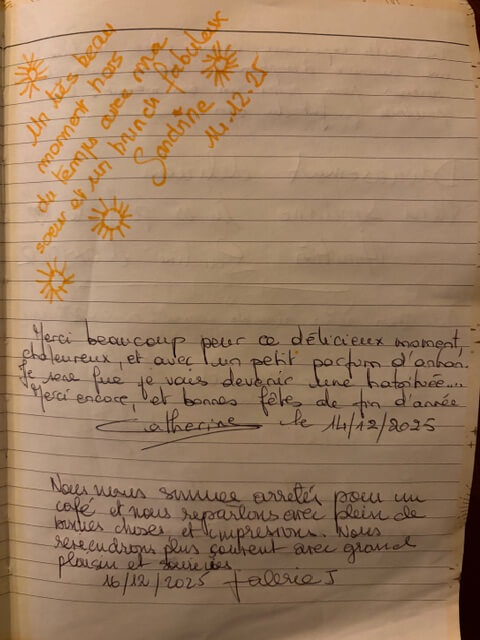 Un très beau
moment hors
du temps avec ma
soeur et un brunch fabuleux
Sandrine
14.12.25
Merci beaucoup pour ce délicieux moment,
chaleureux, et avec un petit parfum d'antan.
Je sens que je vais devenir une habituée...
Merci encore, et bonnes fêtes de fin d'année
Catherine le 14/12/2025
Nous nous sommes arretés pour un
café et nous repartons avec plein de
choses et impressions. Nous
reviendrons plus souvent avec grand
plaisir et
16/12/2025 Valerie J